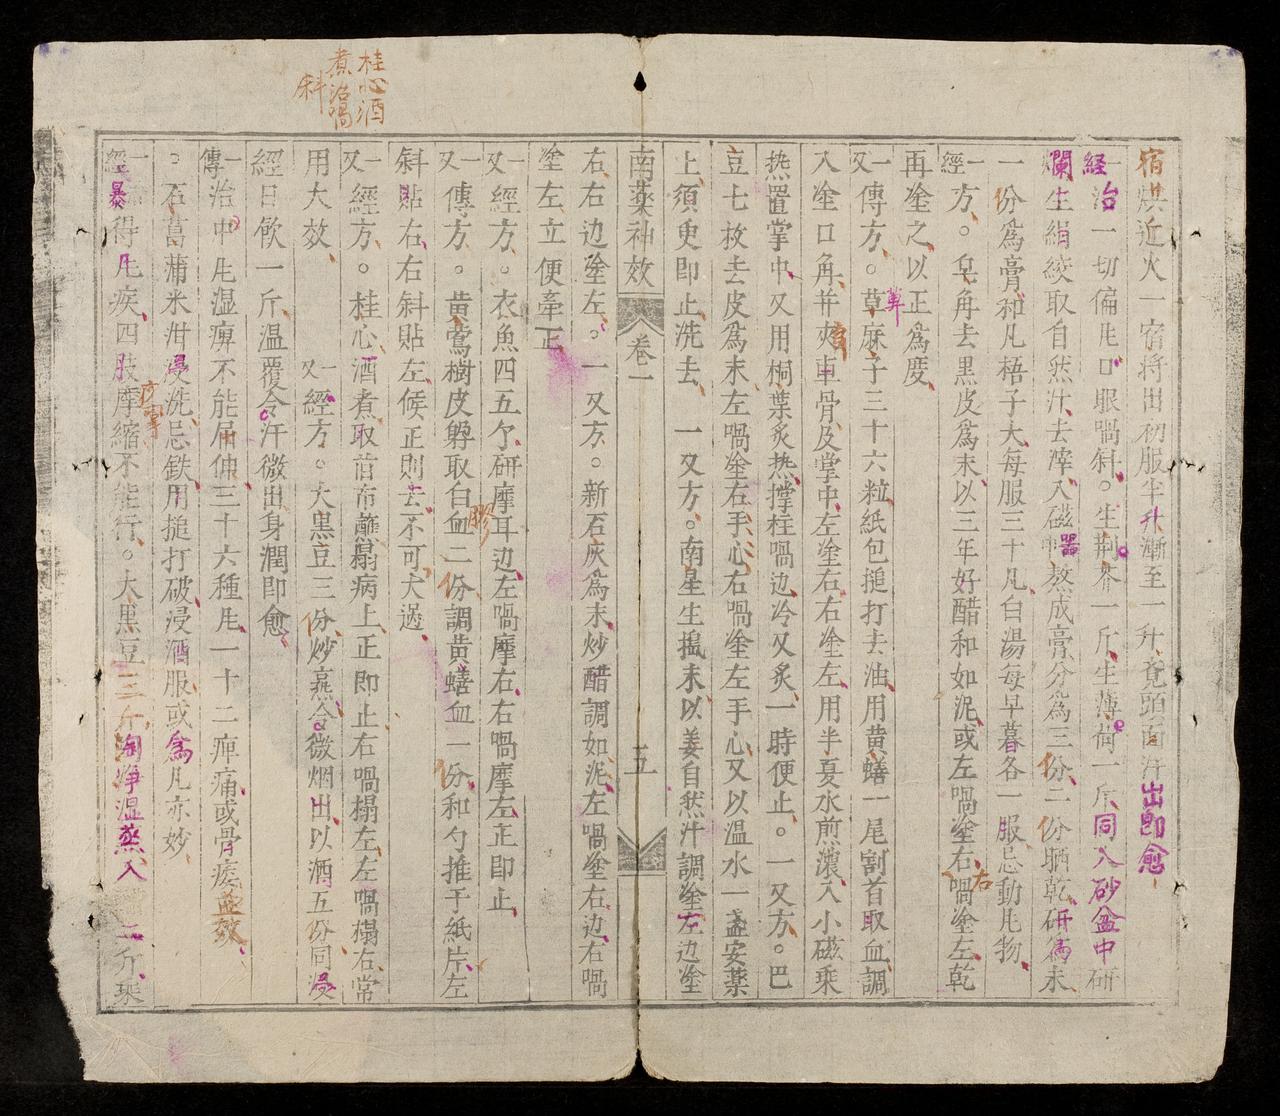 宿烘近火一宿将出初服半升漸至一升覔頭面汗出即愈
一經治一切偏凨口眼喎斜。生荆芥一斤生薄荷一斤同入砂盆中研
爛生絹絞取自然汁去滓入磁器中熬成膏分爲三份二份晒乾研為末
一份爲膏和凡梧子大每服三十凡白湯每早暮各一服忌動凨物
一經方。皂角去黑皮爲末以三年好醋和如泥或左喎塗右右喎塗左乾
再塗之以正爲度
一又傳方。草麻子三十六粒紙包搥打去油用黄蟮一尾割首取血調
入塗口角并夾車骨及掌中左塗右右塗左用半夏水煎濃入小磁乘
热置掌中又用桐葉炙热撑柱喎边冷又炙一時便止。一又方。巴
豆七枚去皮爲末左喎塗右手心右喎塗左手心又以温水一盞安薬
上須臾即止洗去 一又方。南星生搗末以姜自然汁調塗左边塗
南薬神效 卷一 五
右右边塗左。一又方。新石灰爲末炒醋調如泥左喎塗右边右喎
塗左立便牽正
一又經方。衣魚四五个研摩耳边左喎摩右右喎摩左正即止
一又傳方。黄鶯樹皮膠取白血二份調黄蟮血一份和勺推于紙片左
斜貼右右斜貼左候正則去不可大過
一又經方。桂心酒煮取苜布蘸搨病上正即止右喎搨左左喎搨右常
用大效 一又經方。大黑豆三份炒熹令微烟出以酒五份同浸
經日飮一斤温覆令汗微出身潤即愈
一傳治中凨湿痹不能屈伸三十六種凨一十二痹痛或骨痿並效
。石菖蒲米泔浸洗忌鉄用搥打破浸酒服或為凡亦妙
一經暴得凨疾四肢摩縮不能行。大黑豆三斤淘净温蒸入 二斤乘
桂心酒
煮治喎
斜